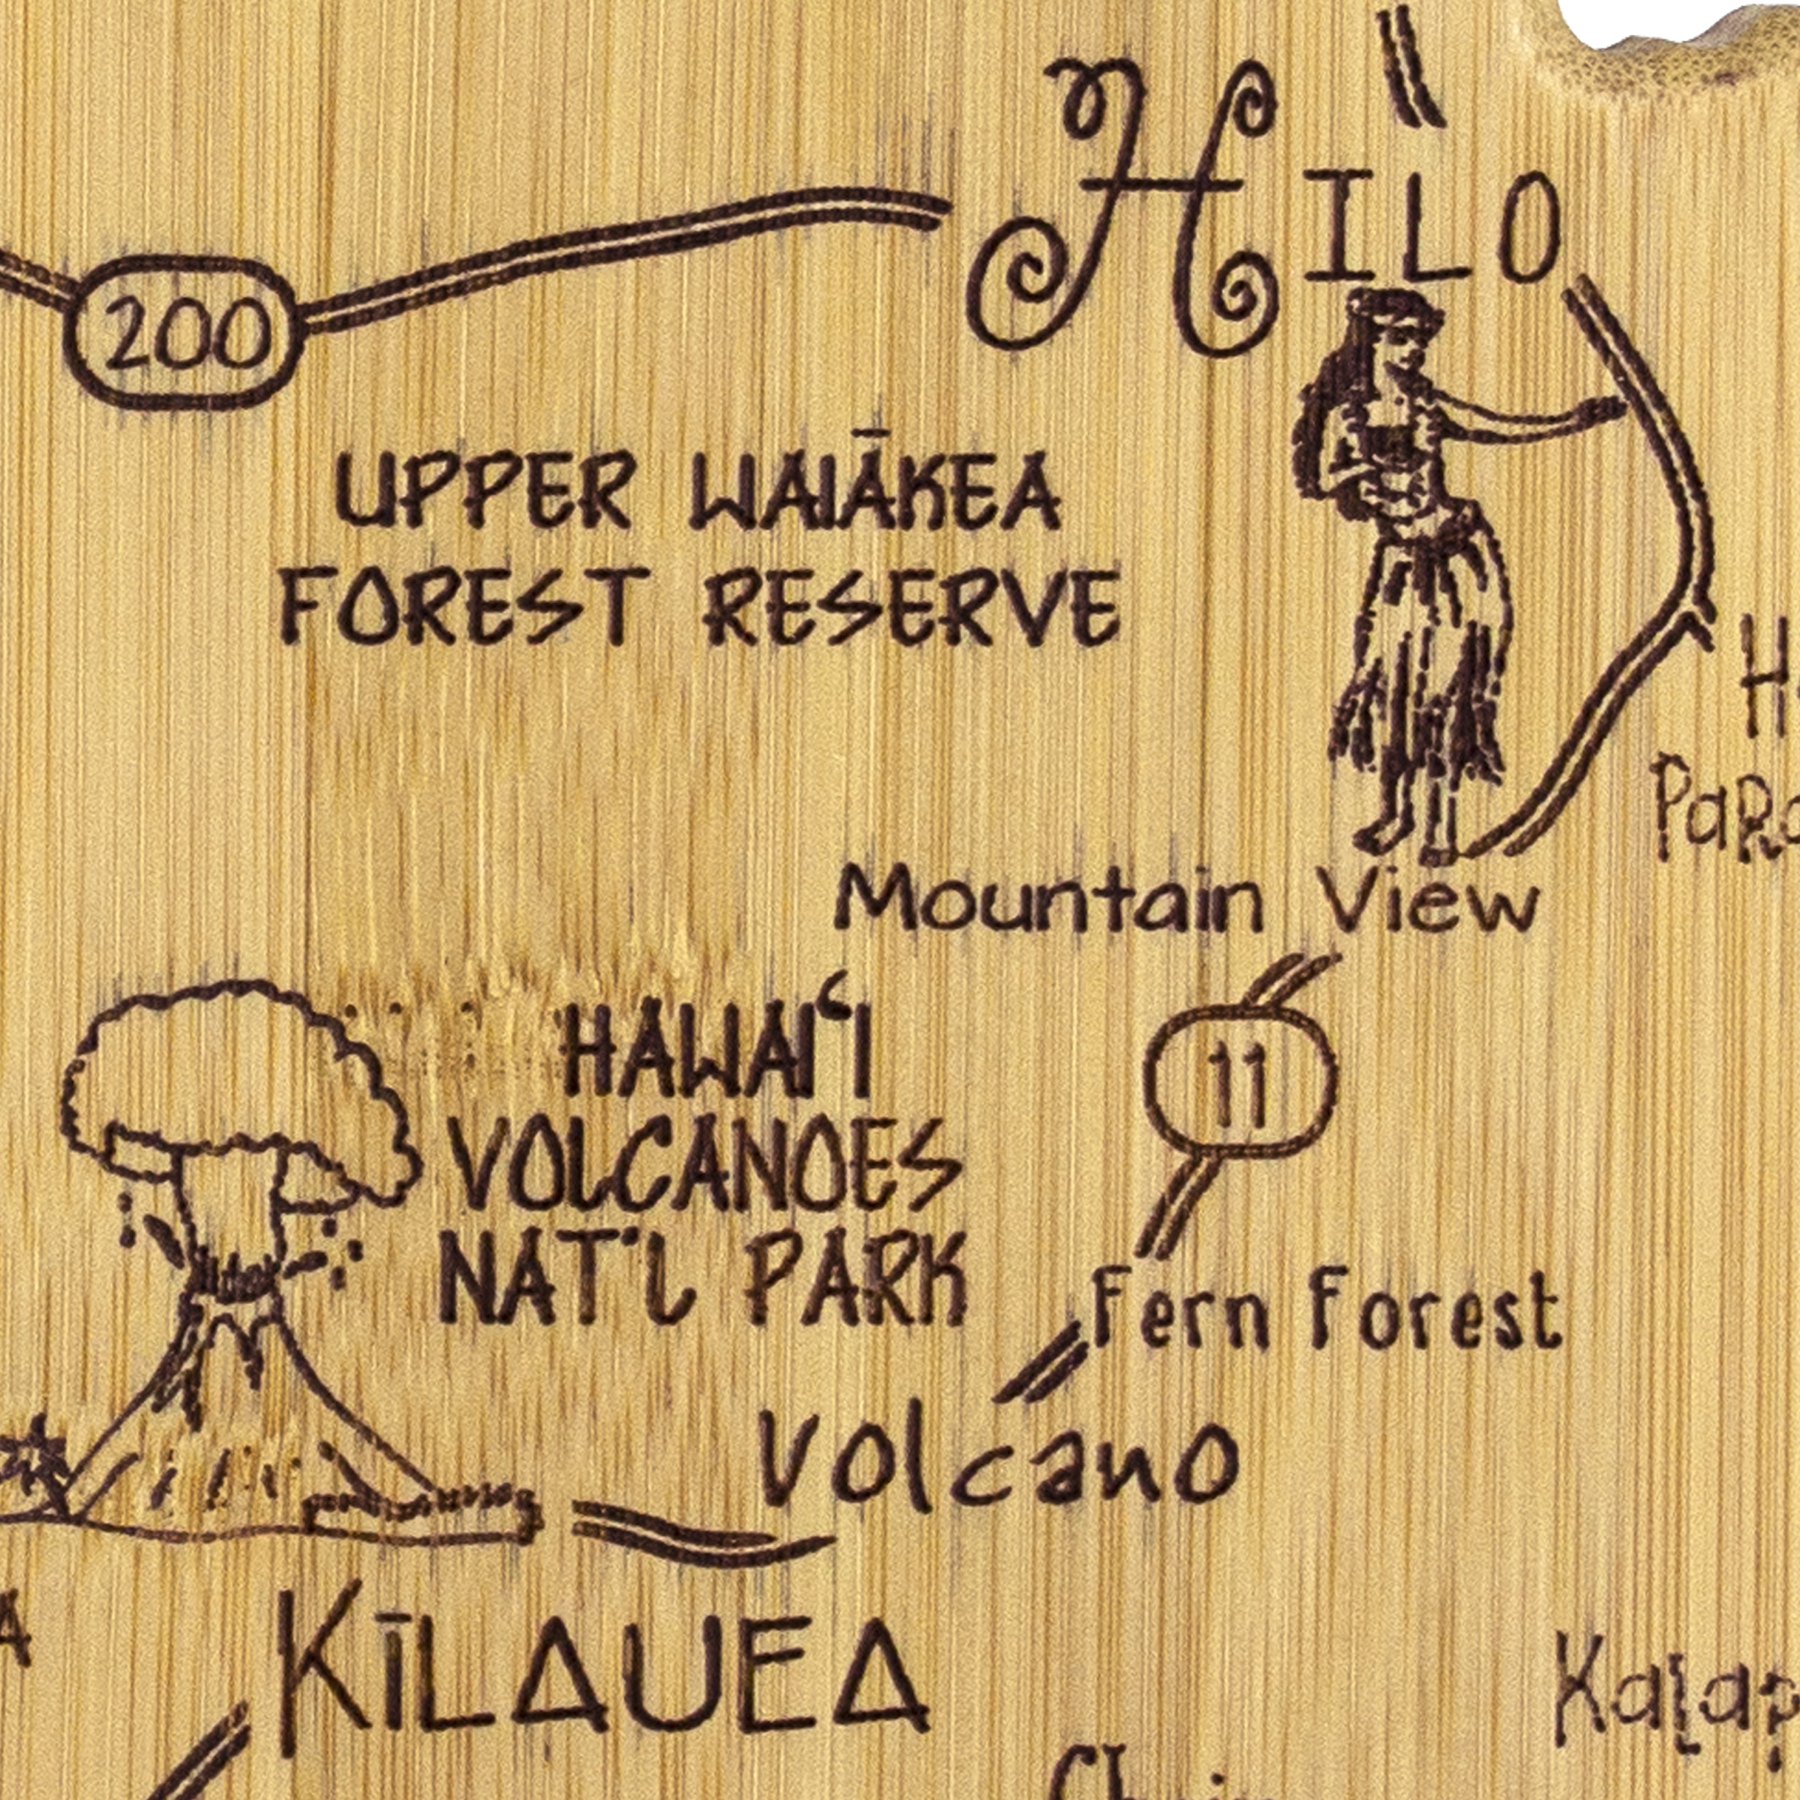 HILO
200
UPPER WAIĀKEA
FOREST RESERVE
Mountain View
HAWAIʻI
VOLCANOES
NAT'L PARK
11
Fern Forest
Volcano
KĪLAUEA